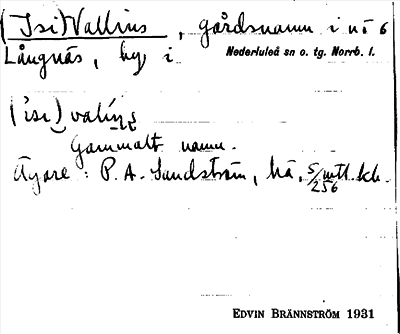 (Isi)Vallins, gårdsnamn i nö 6
Långnäs, by i Nederluleå sn o. tg. Norrb. l.
('isi)valíns
Gammalt namn.
Ägare: P. A. Sandström, hä,
EDVIN BRÄNNSTRÖM 1931